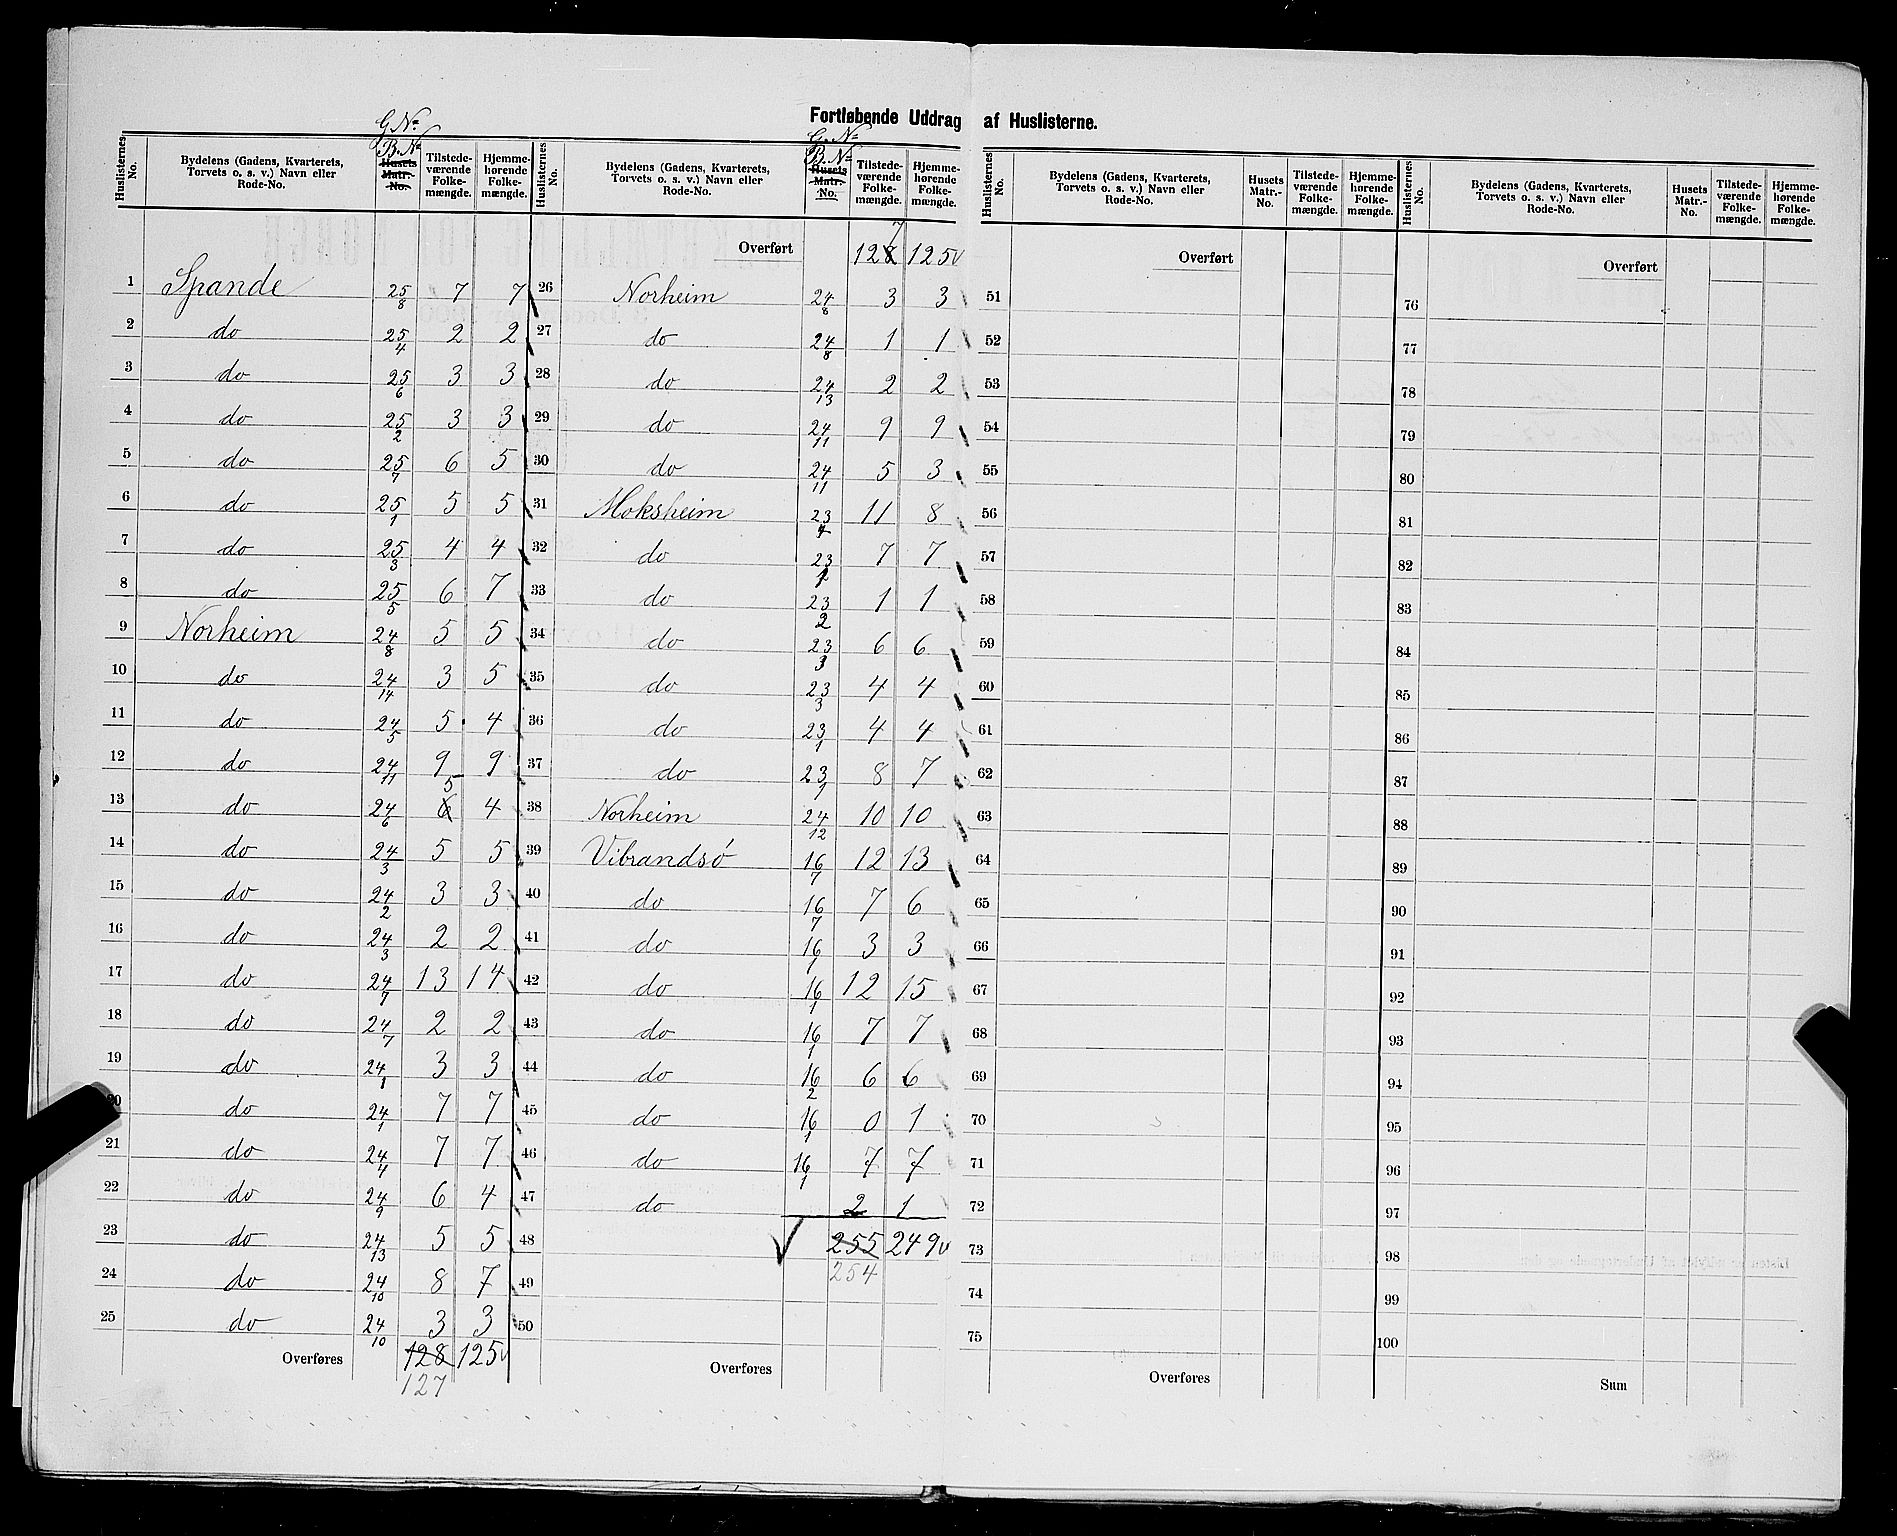 Fortløbende Uddrag af Huslisterne.
Huslisternes No. | Bydelens (Gadens, Kvarterets, Torvets o. s. v.) Navn eller Rode-No. | G. No. B. No. Husets Matr.-No. | Tilstede-værende Folke-mængde. | Hjemme-hørende Folke-mængde.
1 Spande 25/8 7 7
2 do 25/4 2 2
3 do 25/6 3 3
4 do 25/2 3 3
5 do 25/7 6 5
6 do 25/1 5 5
7 do 25/3 4 4
8 do 25/5 6 7
9 Norheim 24/8 5 5
10 do 24/14 3 5
11 do 24/5 5 4
12 do 24/11 9 9
13 do 24/6 6 5 4
14 do 24/3 5 5
15 do 24/2 3 3
16 do 24/3 2 2
17 do 24/7 13 14
18 do 24/7 2 2
19 do 24/1 3 3
20 do 24/1 7 7
21 do 24/4 7 7
22 do 24/9 6 4
23 do 24/13 5 5
24 do 24/10 8 7
25 do 24/10 3 3
Overføres 128 125
127
Huslisternes No. | Bydelens (Gadens, Kvarterets, Torvets o. s. v.) Navn eller Rode-No. | G. No. B. No. Husets Matr.-No. | Tilstede-værende Folke-mængde. | Hjemme-hørende Folke-mængde.
Overført 128 7 125
26 Norheim 24/8 3 3
27 do 24/8 1 1
28 do 24/13 2 2
29 do 24/11 9 9
30 do 24/11 5 3
31 Moksheim 23/4 11 8
32 do 23 7 7
33 do 23/2 1 1
34 do 23/3 6 6
35 do 23/3 4 4
36 do 23/1 4 4
37 do 23/1 8 7
38 Norheim 24/12 10 10
39 Vibrandsø 16/7 12 13
40 do 16/7 7 6
41 do 16/1 3 3
42 do 16/1 12 15
43 do 16/1 7 7
44 do 16/2 6 6
45 do 16/1 0 1
46 do 16/1 7 7
47 do 2 1
48 255 249
49 254
50
Overføres
Huslisternes No. | Bydelens (Gadens, Kvarterets, Torvets o. s. v.) Navn eller Rode-No. | Husets Matr.-No. | Tilstede-værende Folke-mængde. | Hjemme-hørende Folke-mængde.
Overført
51
52
53
54
55
56
57
58
59
60
61
62
63
64
65
66
67
68
69
70
71
72
73
74
75
Overføres
Huslisternes No. | Bydelens (Gadens, Kvarterets, Torvets o. s. v.) Navn eller Rode-No. | Husets Matr.-No. | Tilstede-værende Folke-mængde. | Hjemme-hørende Folke-mængde.
Overført
76
77
78
79
80
81
82
83
84
85
86
87
88
89
90
91
92
93
94
95
96
97
98
99
100
Sum